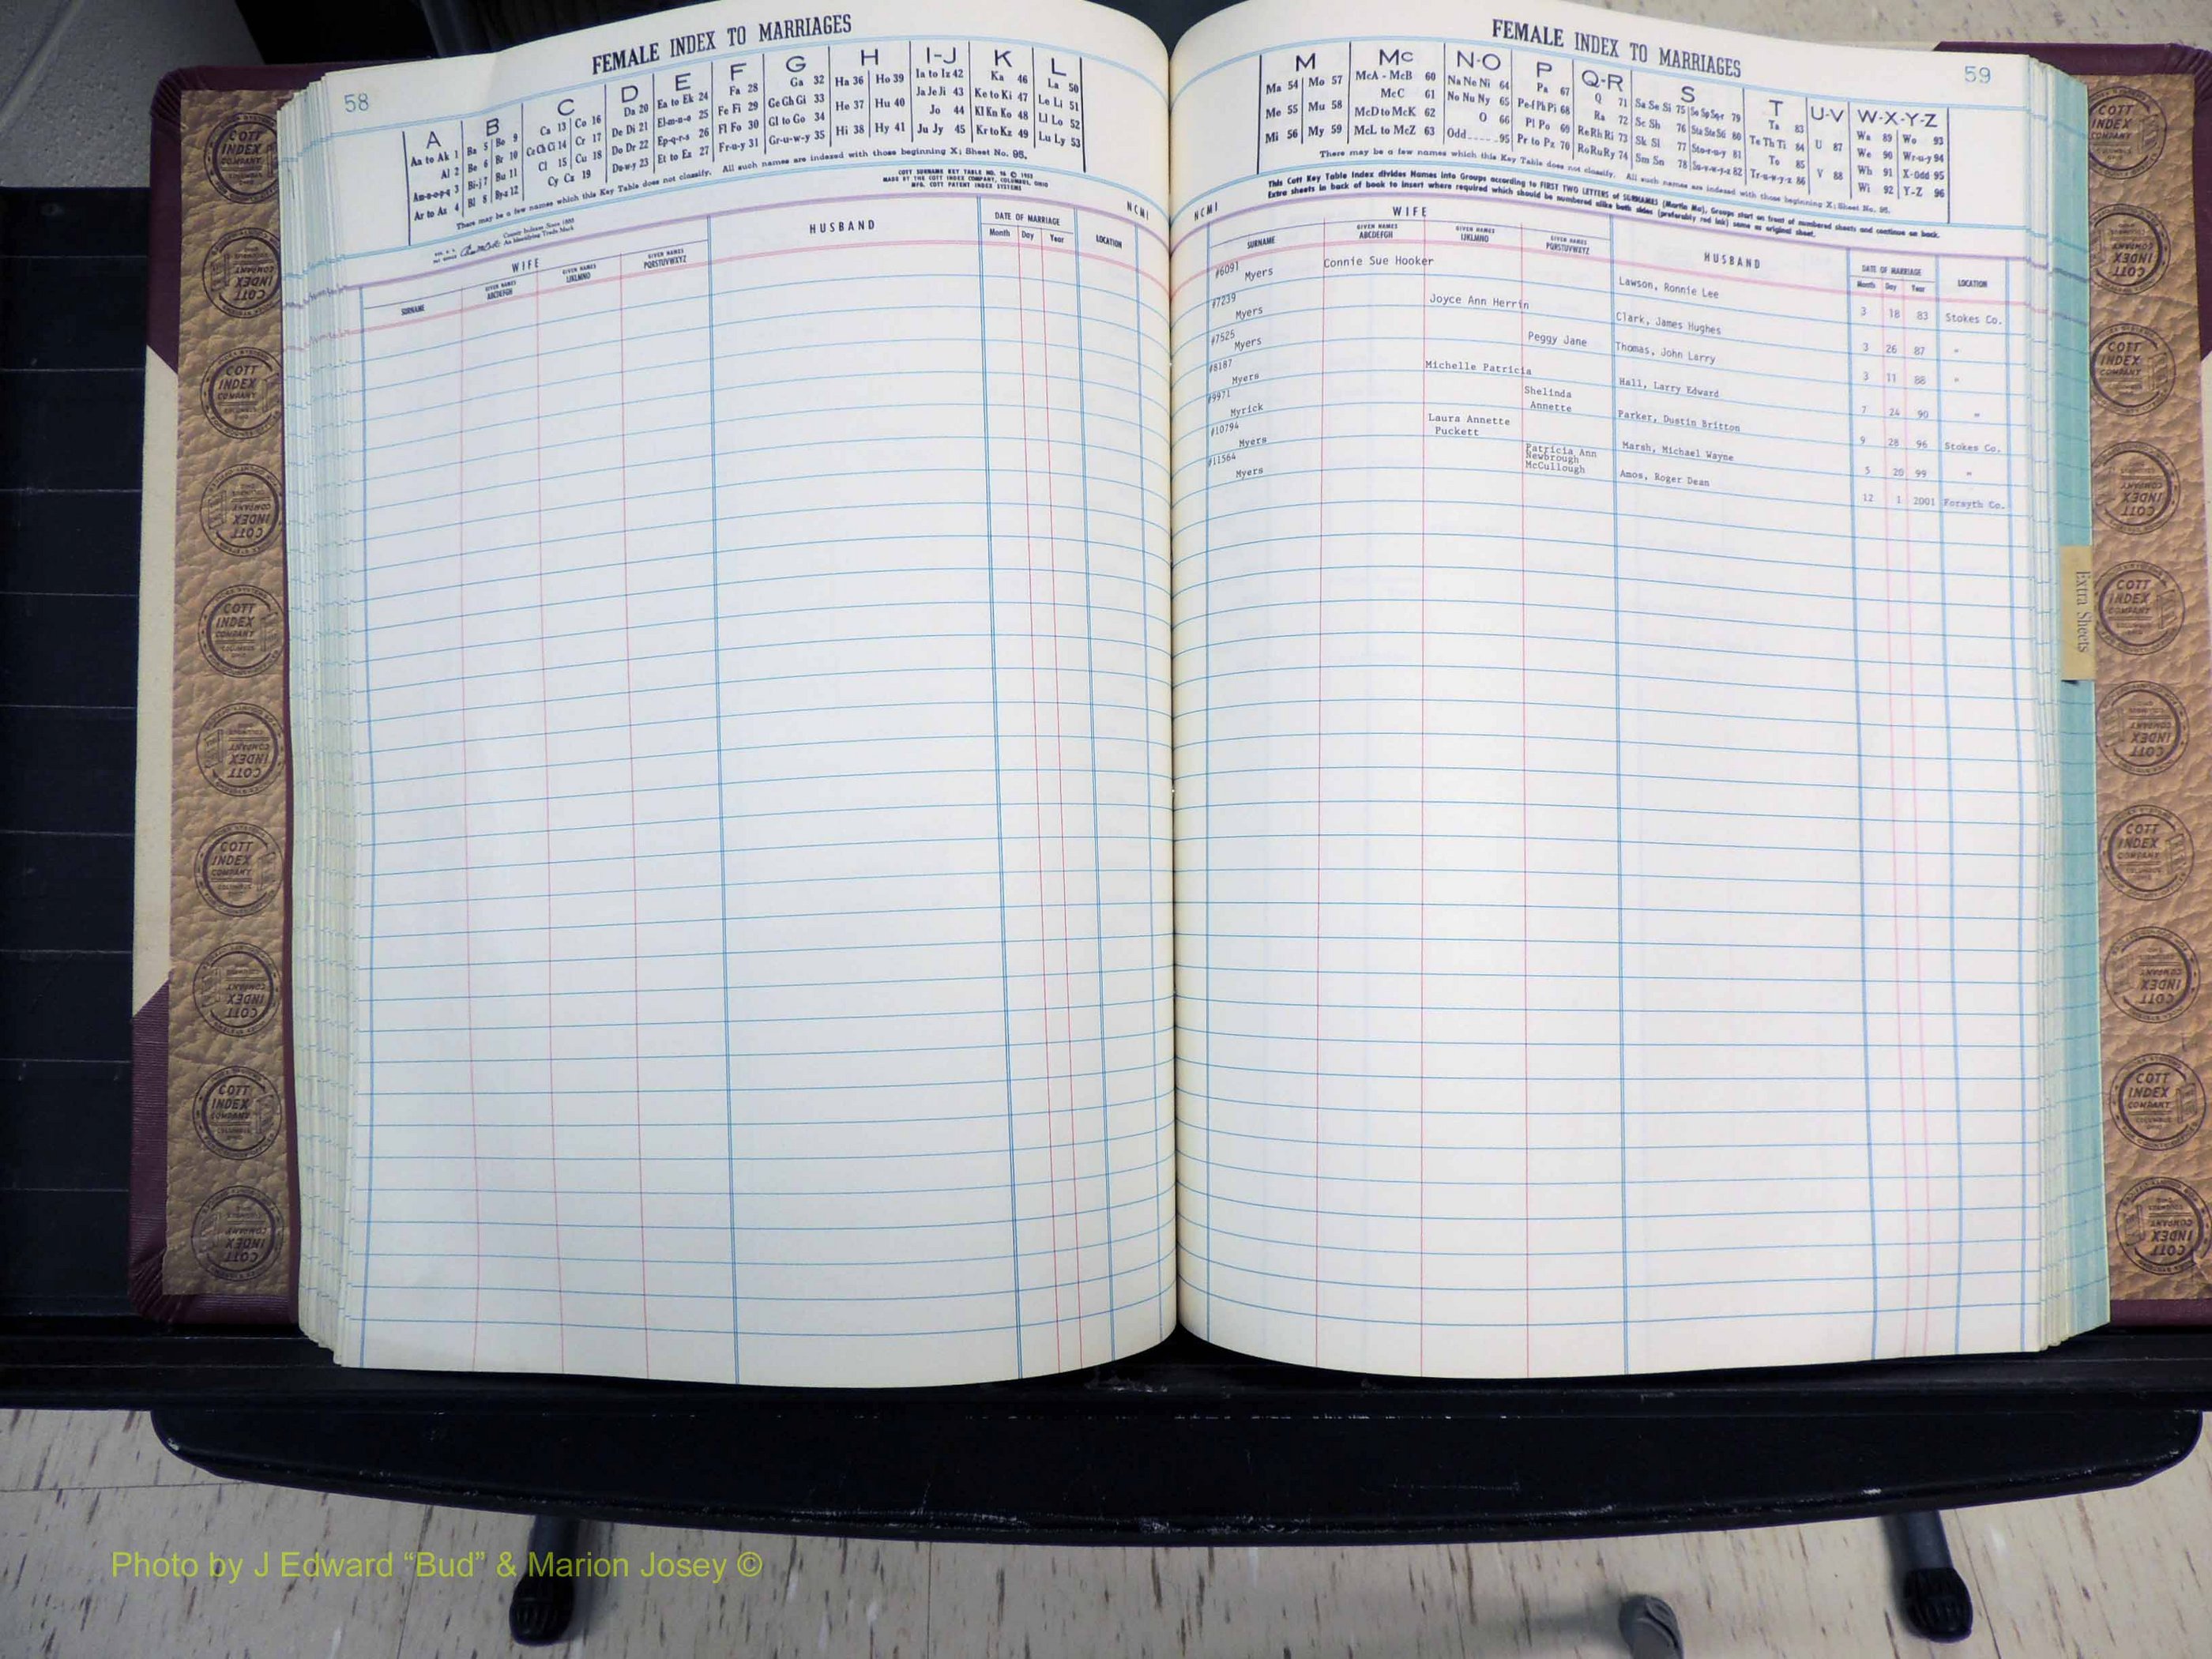 FEMALE INDEX TO MARRIAGES
58
A B C D E F G H I-J K L
Aa to Ak 1 Ba 5 Bo 9 Ca 13 Co 16 Da 20 Ea to Ek 24 Fa 28 Ga 32 Ha 36 Ho 39 Ia to Iz 42 Ka 46 La 50
Al 2 Be 6 Br 10 Ce Ch Ci 14 Cr 17 De Di 21 El-m-n-o 25 Fe Fi 29 Ge Gh Gi 33 He 37 Hu 40 Ja Je Ji 43 Ke to Ki 47 Le Li 51
Am-n-o-p-q 3 Bi-j 7 Bu 11 Cl 15 Cu 18 Do Dr 22 Ep-q-r-s 26 Fl Fo 30 Gl to Go 34 Hi 38 Hy 41 Jo 44 Kl Kn Ko 48 Ll Lo 52
Ar to Az 4 Bl 8 By-z 12 Cy Cz 19 Du-w-y 23 Et to Ez 27 Fr-u-y 31 Gr-u-w-y 35 Ju Jy 45 Kr to Kz 49 Lu Ly 53
There may be a few names which this Key Table does not classify. All such names are indexed with those beginning X; Sheet No. 95.
COTT SURNAME KEY TABLE NO.
MADE BY THE COTT INDEX COMPANY, COLUMBUS, OHIO
MFG. COTT PATENT INDEX SYSTEMS
County Indexes Since 1888
An Identifying Trade Mark
NCMI
WIFE HUSBAND DATE OF MARRIAGE LOCATION
SURNAME GIVEN NAMES ABCDEFGH GIVEN NAMES IJKLMNO GIVEN NAMES PQRSTUVWXYZ Month Day Year
FEMALE INDEX TO MARRIAGES
59
M Mc N-O P Q-R S T U-V W-X-Y-Z
Ma 54 Mo 57 McA - McB 60 Na Ne Ni 64 Pa 67 Q 71 Sa Se Si 75 So Sp Sq-r 79 Ta 83 U 87 Wa 89 Wo 93
Me 55 Mu 58 McC 61 No Nu Ny 65 Pe-f Ph Pi 68 Ra 72 Sc Sh 76 Sta Ste Sti 80 Te Th Ti 84 V 88 We 90 Wr-u-y 94
Mi 56 My 59 McD to McK 62 O 66 Pl Po 69 Re Rh Ri 73 Sk Sl 77 Sto-r-u-y 81 To 85 Wh 91 X-Odd 95
McL to McZ 63 Odd 95 Pr to Pz 70 Ro Ru Ry 74 Sm Sn 78 Su-v-w-y-z 82 Tr-u-w-y-z 86 Wi 92 Y-Z 96
There may be a few names which this Key Table does not classify. All such names are indexed with those beginning X; Sheet No. 95.
This Cott Key Table Index divides Names into Groups according to FIRST TWO LETTERS of SURNAMES (Martin Ma), Groups start on front of numbered sheets and continue on back.
Extra sheets in back of book to insert where required which should be numbered alike both sides (preferably red ink) same as original sheet.
NCMI
WIFE HUSBAND DATE OF MARRIAGE LOCATION
SURNAME GIVEN NAMES ABCDEFGH GIVEN NAMES IJKLMNO GIVEN NAMES PQRSTUVWXYZ Month Day Year
#6091 Myers Connie Sue Hooker Lawson, Ronnie Lee 3 18 83 Stokes Co.
#7239 Myers Joyce Ann Herrin Clark, James Hughes 3 26 87 "
#7525 Myers Peggy Jane Thomas, John Larry 3 11 88 "
#8187 Myers Michelle Patricia Hall, Larry Edward 7 24 90 "
#9971 Myrick Shelinda Annette Parker, Dustin Britton 9 28 96 Stokes Co.
#10794 Myers Laura Annette Puckett Marsh, Michael Wayne 5 20 99 "
#11564 Myers Patricia Ann Newbrough McCullough Amos, Roger Dean 12 1 2001 Forsyth Co.
Extra Sheets
COTT INDEX COMPANY
Photo by J Edward “Bud” & Marion Josey ©